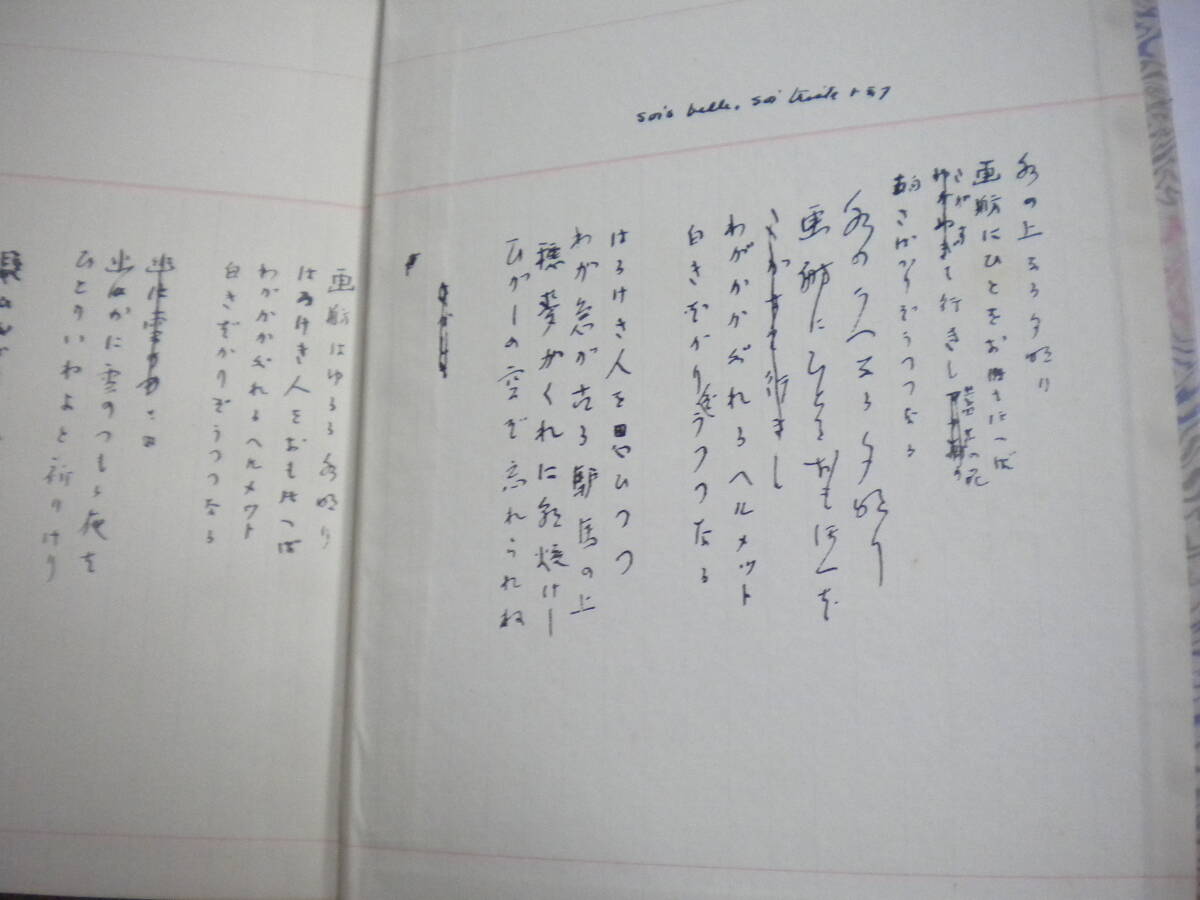 sois belle, sois triste ト云フ
水の上なる夕明り
画舫にひとをおもほへば
行きし薔薇の花
白きばかりぞうつつなる
水のうへなる夕明り
画舫にひとをおもほへば
行きし
わがかかぶれるヘルメット
白きばかりぞうつつなる
はるけき人を思ひつつ
わが急がする驢馬の上
穂麦がくれに朝焼けし
ひがしの空ぞ忘れられね
画舫はゆるる水明り
はるけき人をおもほへば
わがかかぶれるヘルメット
白きばかりぞうつつなる
幽かに雪のつもる夜を
ひとりいねよと祈りけり